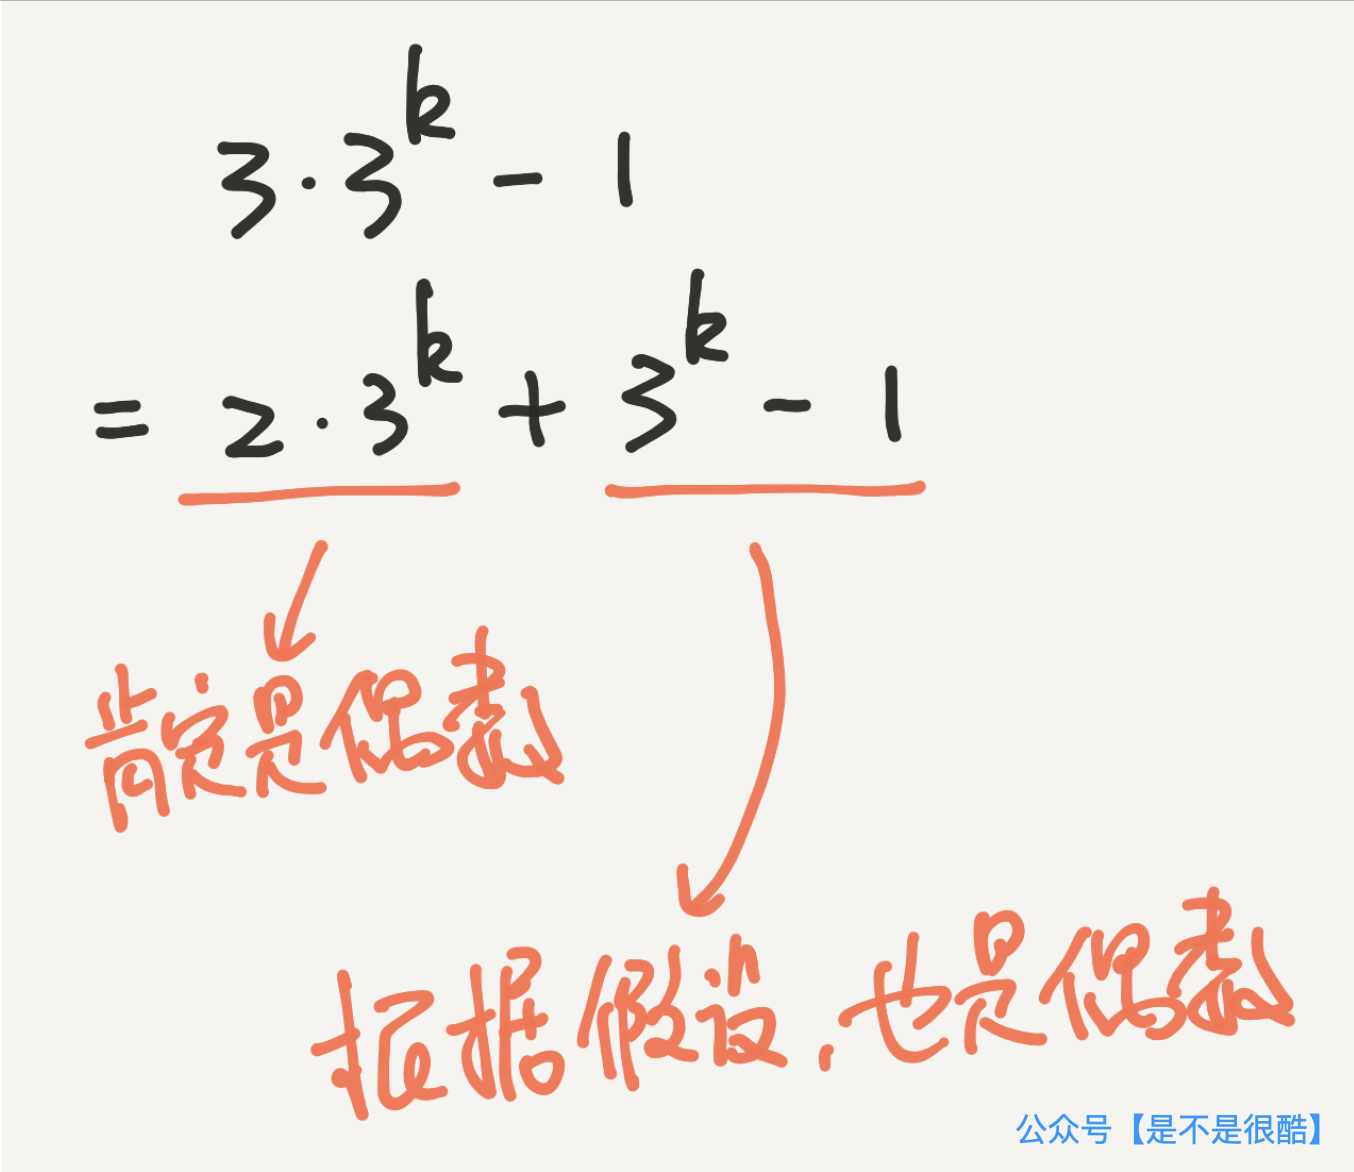 3·3^k - 1
= 2·3^k + 3^k - 1
肯定是偶数
根据假设，也是偶数
公众号【是不是很酷】